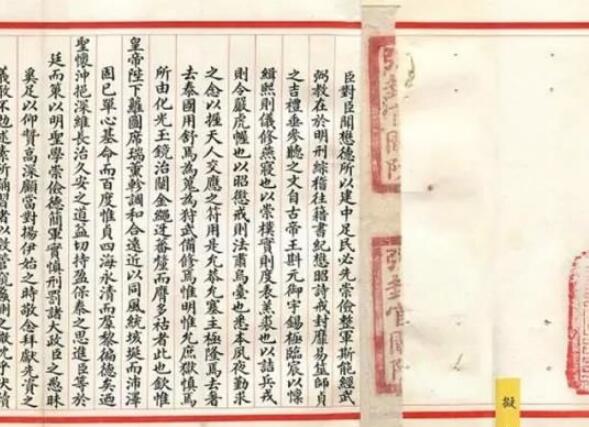 臣對臣聞懋德所以建中足民必先崇儉整軍斯能經武
弼教在於明刑綜稽往籍書紀懋昭詩戒封靡易筮師貞
之吉禮垂參聽之文自古帝王斟元御宇錫極臨宸以懍
緝熙則儀修燕寢也以崇樸實則度表羔裘也以詰兵戎
則令嚴虎幄也以昭懲戒則法肅烏臺也悉本夙夜勤求
之念以握天人交應之符用是允恭允塞主極隆焉去奢
去泰國用舒焉為蒐為狩武備修焉惟明惟允庶獄慎焉
所由化光玉鏡治闡金繩迓蕃釐而膺多祜者此也欽惟
皇帝陛下蘿圖席瑞蕫軫調和合遠近以同風統垓埏而沛澤
固已單心基命而百度惟貞四海永清而羣黎徧德矣迺
聖懷沖挹深維長治久安之道益切持盈保泰之思進臣等於
廷而策以明聖學崇儉德簡軍實慎刑罰諸大政臣之愚昧
奚足以仰贊高深顧當對揚伊始之時敬念拜獻先資之
義敢不勉述素所誦習者以效管窺蠡測之微忱乎伏讀
彌封官關防
彌封官關防
擬